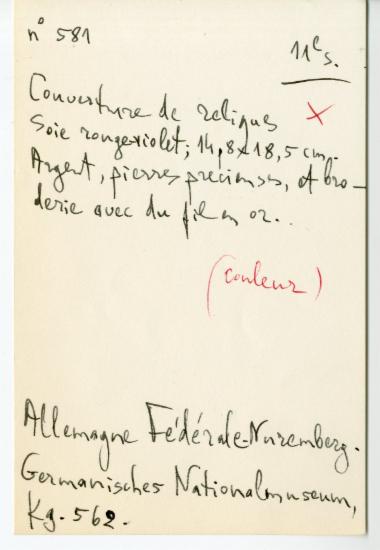 n° 581
11e s.
Couverture de reliques
Soie rouge violet; 14,8x18,5 cm.
Argent, pierres précieuses, et bro-
derie avec du fil en or..
(couleur)
Allemagne Fédérale-Nuremberg.
Germanisches Nationalmuseum,
Kg. 562.